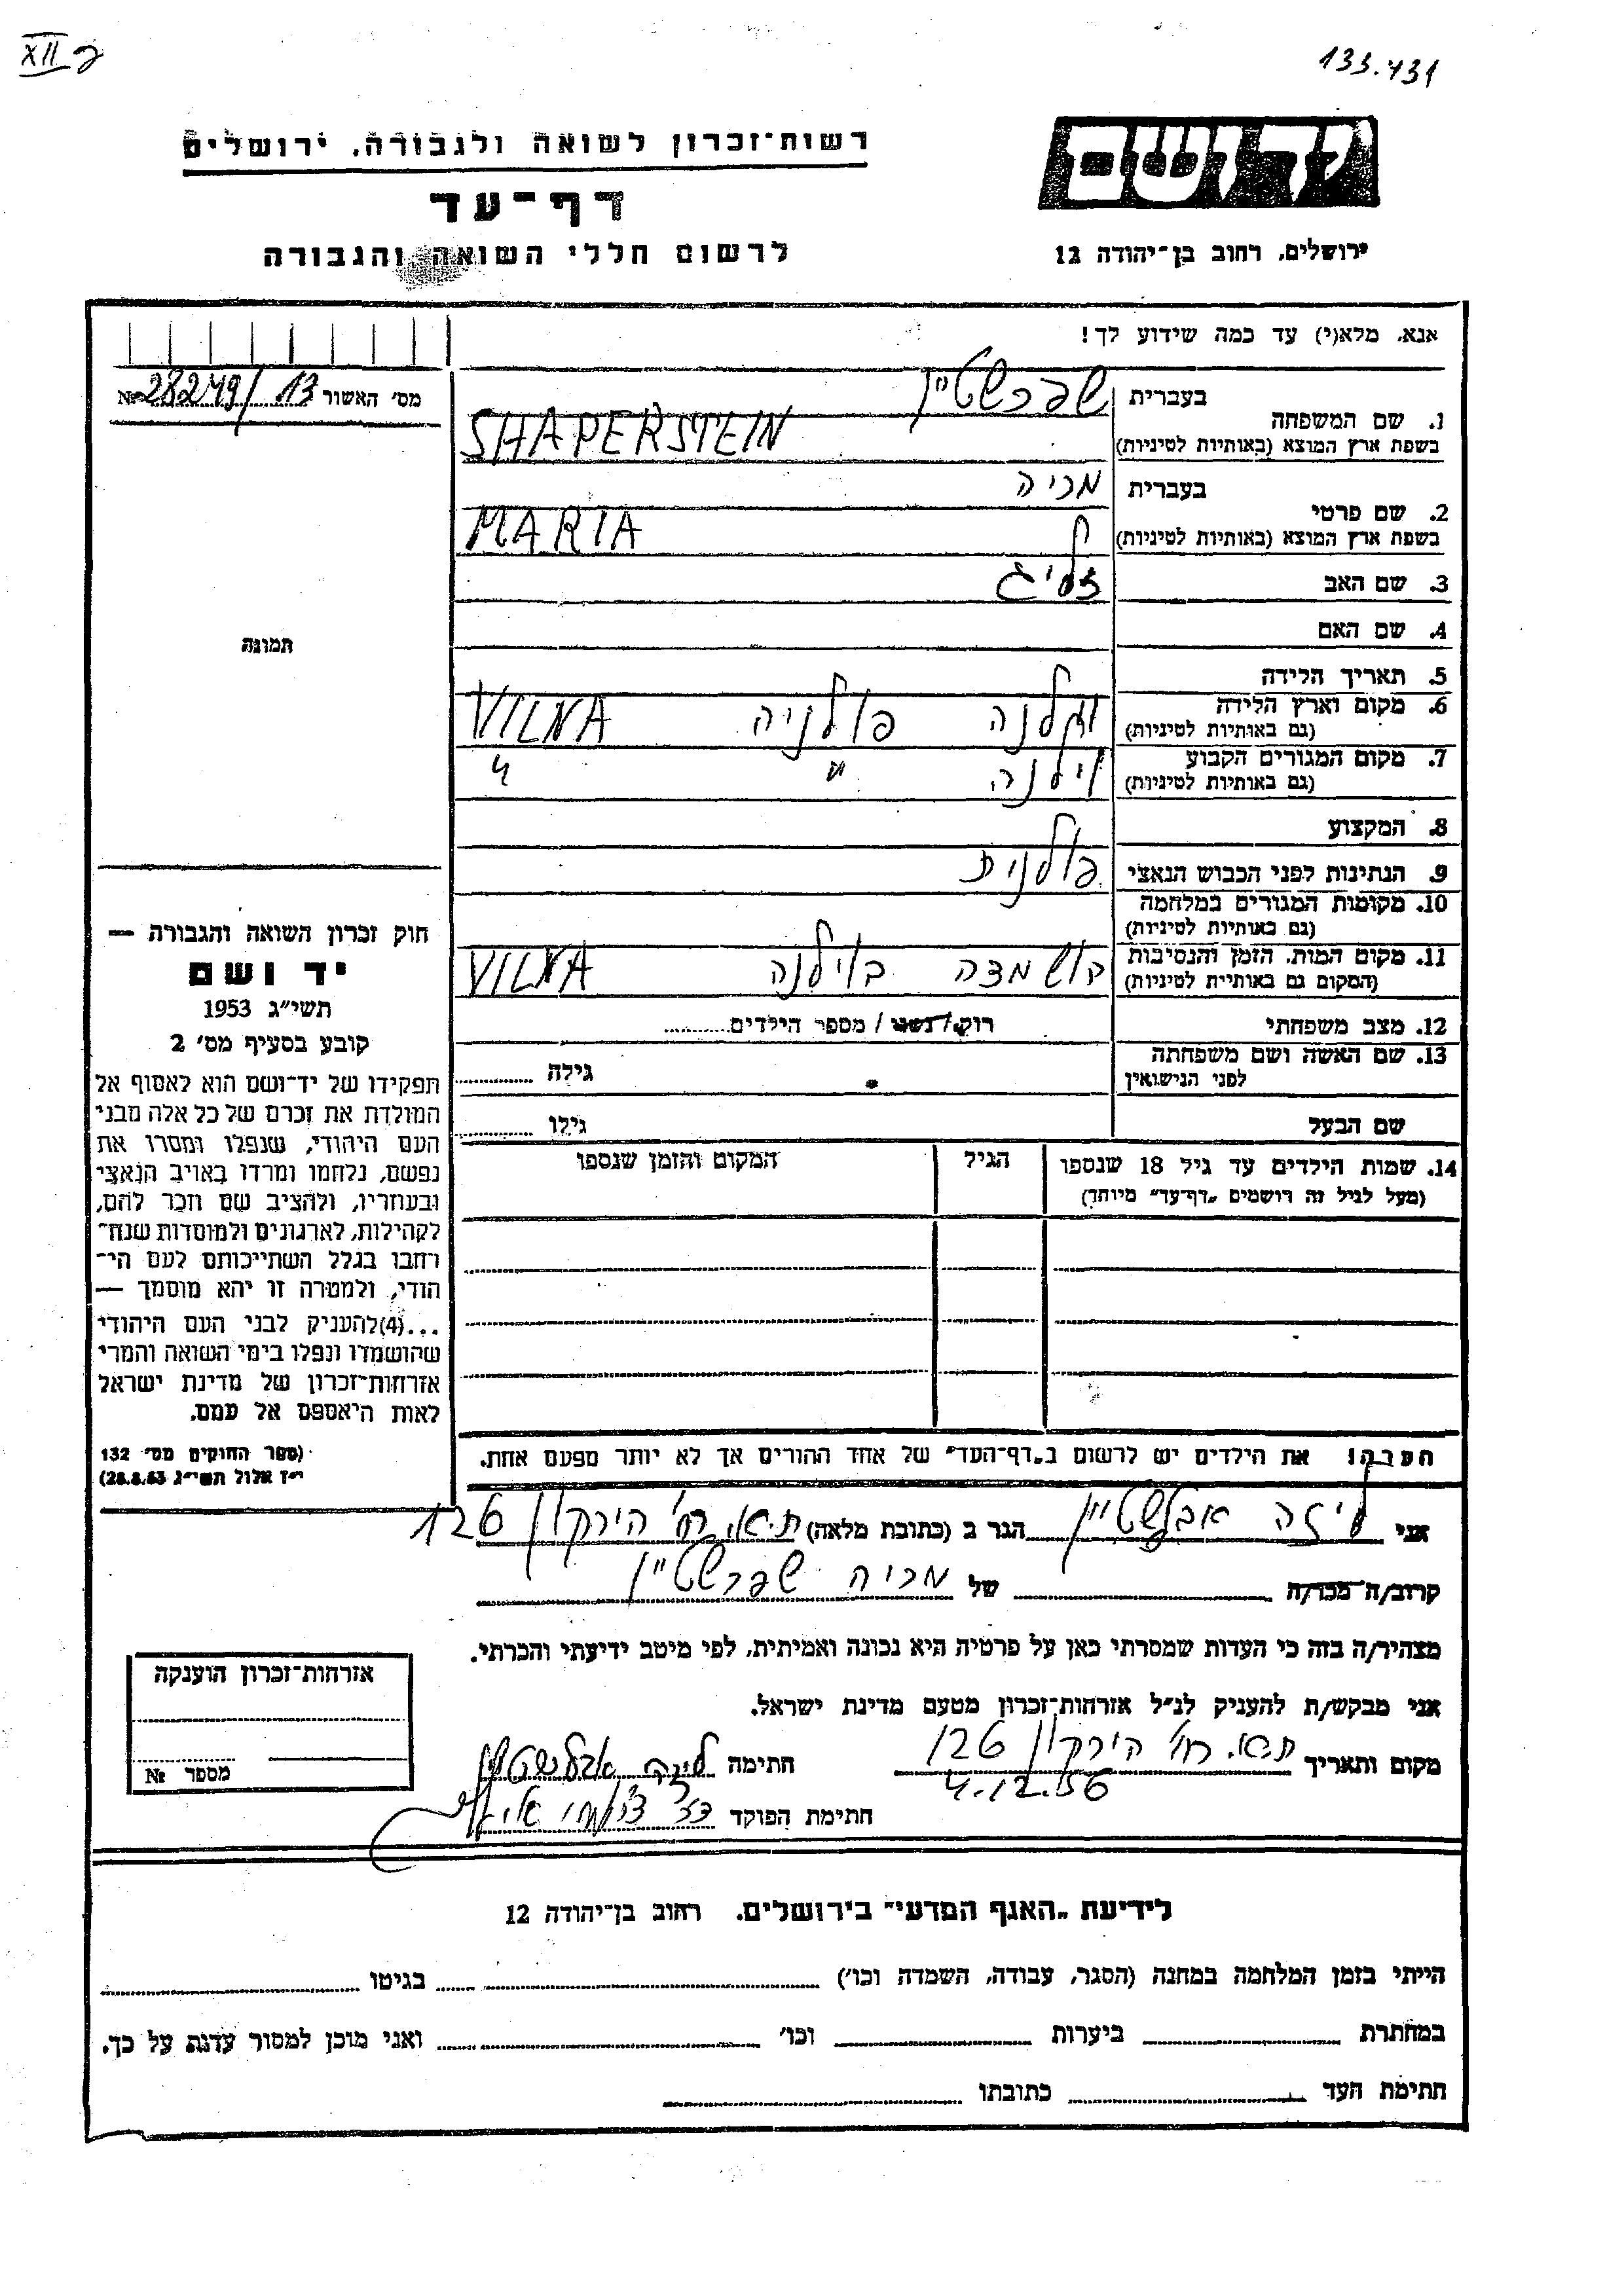 XII
133.431
יד ושם
רשות־זכרון לשואה ולגבורה, ירושלים
דף־עד
לרשום חללי השואה והגבורה
ירושלים, רחוב בן־יהודה 12
אנא, מלא(י) עד כמה שידוע לך!
מס' האשור 28249/13 №
1. שם המשפחה
בעברית שפרשטיין
בשפת ארץ המוצא (באותיות לטיניות) SHAPERSTEIN
2. שם פרטי
בעברית מריה
בשפת ארץ המוצא (באותיות לטיניות) MARIA
3. שם האב זליג
4. שם האם
5. תאריך הלידה
6. מקום וארץ הלידה וילנה פולניה VILNA
(גם באותיות לטיניות)
7. מקום המגורים הקבוע וילנה " "
(גם באותיות לטיניות)
8. המקצוע
9. הנתינות לפני הכבוש הנאצי פולנית
10. מקומות המגורים במלחמה
(גם באותיות לטיניות)
11. מקום המות, הזמן והנסיבות הושמדה בוילנה VILNA
(המקום גם באותיות לטיניות)
12. מצב משפחתי רוק/נשוי / מספר הילדים
13. שם האשה ושם משפחתה
לפני הנישואין גילה
שם הבעל גילו
14. שמות הילדים עד גיל 18 שנספו הגיל המקום והזמן שנספו
(מעל לגיל זה רושמים „דף־עד" מיוחד)
תמונה
חוק זכרון השואה והגבורה —
יד ושם
תשי״ג 1953
קובע בסעיף מס' 2
תפקידו של יד־ושם הוא לאסוף אל
המולדת את זכרם של כל אלה מבני
העם היהודי, שנפלו ומסרו את
נפשם, נלחמו ומרדו באויב הנאצי
ובעוזריו, ולהציב שם וזכר להם,
לקהילות, לארגונים ולמוסדות שנח־
רחבו בגלל השתייכותם לעם הי־
הודי, ולמטרה זו יהא מוסמך —
...(4)להעניק לבני העם היהודי
שהושמדו ונפלו בימי השואה והמרי
אזרחות־זכרון של מדינת ישראל
לאות היאספם אל עמם.
(ספר החוקים מס' 132
י״ז אלול תשי״ג 28.8.53)
הערה! את הילדים יש לרשום ב„דף־העד" של אחד ההורים אך לא יותר מפעם אחת.
אני ליזה אבלשטיין הגר ב (כתובת מלאה) ת.א. רח' הירקון 126
קרוב/ה מכר/ה של מריה שפרשטיין
מצהיר/ה בזה כי העדות שמסרתי כאן על פרטיה היא נכונה ואמיתית, לפי מיטב ידיעתי והכרתי.
אני מבקש/ת להעניק לנ״ל אזרחות־זכרון מטעם מדינת ישראל.
מקום ותאריך ת.א. רח' הירקון 126 חתימה
4.12.56
חתימת הפוקד
אזרחות־זכרון הוענקה
מספר №
לידיעת „האגף המדעי" בירושלים, רחוב בן־יהודה 12
הייתי בזמן המלחמה במחנה (הסגר, עבודה, השמדה וכו') בגיטו
במחתרת ביערות וכו' ואני מוכן למסור עדות על כך.
חתימת העד כתובתו